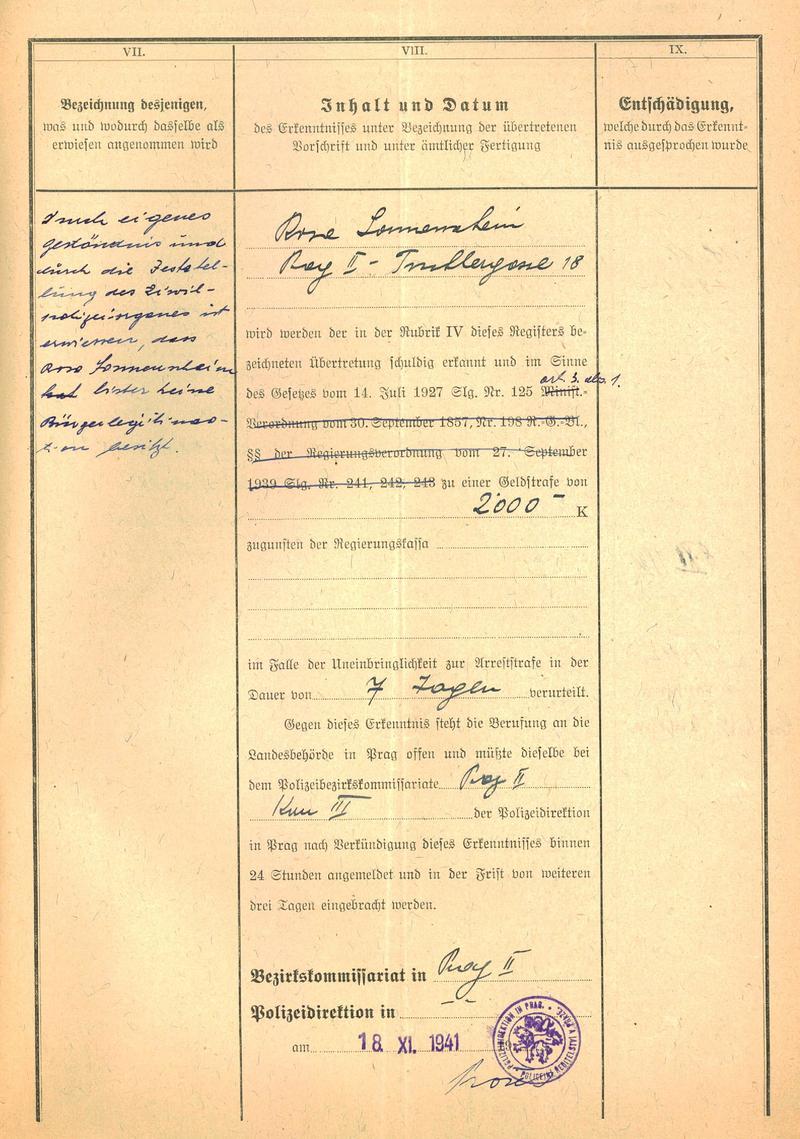 VII.
Bezeichnung desjenigen,
was und wodurch dasselbe als
erwiesen angenommen wird
eigenes
Geständnis und
durch die Feststel-
lung des Zivil-
ist
erwiesen, dass
Rosa Sonnenschein
bisher keine
Bürgerlegitimat-
ion besitzt.
VIII.
Inhalt und Datum
des Erkenntnisses unter Bezeichnung der übertretenen
Vorschrift und unter ämtlicher Fertigung
Rosa Sonnenschein
Prag II - 18
wird werden der in der Rubrik IV dieses Registers be-
zeichneten Übertretung schuldig erkannt und im Sinne
art. 3. abs. 1.
des Gesetzes vom 14. Juli 1927 Slg. Nr. 125 Minist.-
Verordnung vom 30. September 1857, Nr. 198 R.-G.-Bl.,
§§ der Regierungsverordnung vom 27. September
1939 Slg. Nr. 241, 242, 243 zu einer Geldstrafe von
2000 - K
zugunsten der Regierungskassa
im Falle der Uneinbringlichkeit zur Arreststrafe in der
Dauer von 7 Tagen verurteilt.
Gegen dieses Erkenntnis steht die Berufung an die
Landesbehörde in Prag offen und müßte dieselbe bei
dem Polizeibezirkskommissariate Prag II
III der Polizeidirektion
in Prag nach Verkündigung dieses Erkenntnisses binnen
24 Stunden angemeldet und in der Frist von weiteren
drei Tagen eingebracht werden.
Bezirkskommissariat in Prag II
Polizeidirektion in
am 18. XI. 1941 19
POLIZEIDIREKTION IN PRAG. POLICEJNÍ ŘEDITELSTVÍ V PRAZE.
IX.
Entschädigung,
welche durch das Erkennt-
nis ausgesprochen wurde